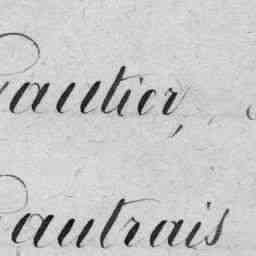 Gautier,
Gautrais